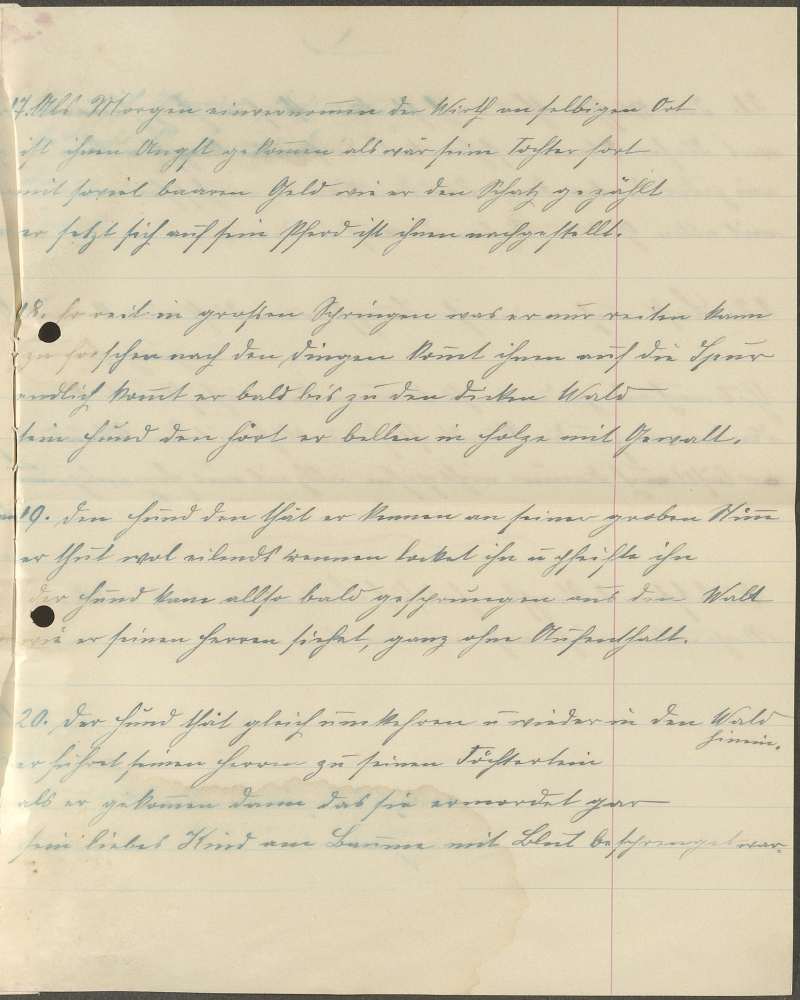 17. Als Morgen einvernom̄en der Wirth an selbigen Ort
ist ihnen Angst gekom̄en als wär seine Tochter fort
mit soviel baaren Geld wie er den Schatz gezählt
er setzt sich auf sein Pferd ist ihnen nachgestellt.
18. Er reit in großen Springen was er nur reiten kann
zu forschen nach den Dingen kom̄t ihnen auf die Spur
endlich kom̄t er bald bis zu den dicken Wald
sein Hund den hört er bellen in Holze mit Gewalt.
19. den Hund den thät er kennen an seiner groben Stim̄e
er thut wol eilends rennen locket ihn u pfeifte ihn
der Hund kam allso bald gesprungen aus den Walt
wie er seinen Herren siehet, ganz ohne Aufenthalt.
20. der Hund thät gleich umkehren u wieder in den Wald
hinein.
er führet seinen Herrn zu seinen Töchterlein
als er gekom̄en dann das sie ermordet gar
sein liebes Kind am Baume mit Blut besprenget war.